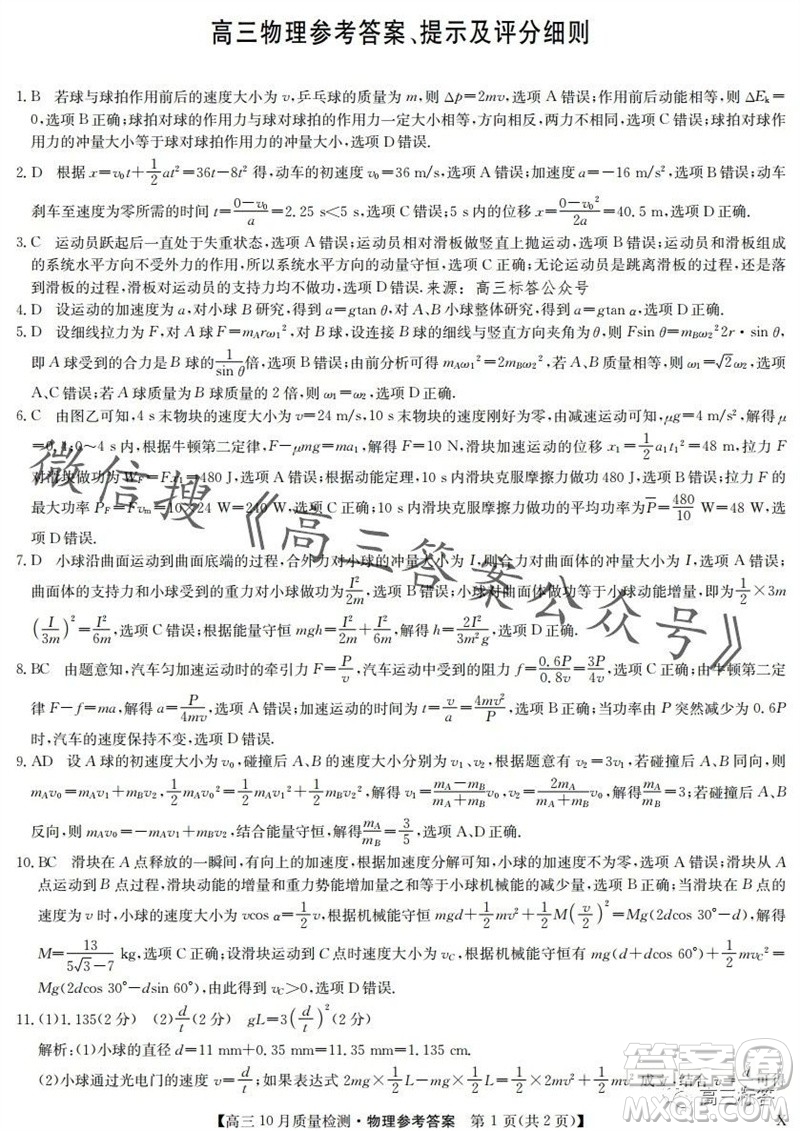 高三物理参考答案、提示及评分细则
1. B 若球与球拍作用前后的速度大小为 v,乒乓球的质量为 m,则 Δp=2mv,选项 A 错误;作用前后动能相等,则 ΔEk=
0,选项 B 正确;球拍对球的作用力与球对球拍的作用力一定大小相等,方向相反,两力不相同,选项 C 错误;球拍对球作
用力的冲量大小等于球对球拍作用力的冲量大小,选项 D 错误.
2. D 根据 x=v₀t+1/2 at²=36t-8t² 得,动车的初速度 v₀=36 m/s,选项 A 错误;加速度 a=-16 m/s²,选项 B 错误;动车
刹车至速度为零所需的时间 t=(0-v₀)/a=2.25 s<5 s,选项 C 错误;5 s 内的位移 x=(0-v₀²)/2a=40.5 m,选项 D 正确.
3. C 运动员跃起后一直处于失重状态,选项 A 错误;运动员相对滑板做竖直上抛运动,选项 B 错误;运动员和滑板组成
的系统水平方向不受外力的作用,系统水平方向动量守恒,选项 C 正确;无论运动员是跳离滑板的过程,还是落
到滑板的过程,滑板对运动员的支持力均不做功,选项 D 错误.来源:高三标答公众号
4. D 设运动的加速度为 a,对小球 B 研究,得到 a=gtan θ,对 A、B 小球整体研究,得到 a=gtan α,选项 D 正确.
5. D 设细线拉力为 F,对 A 球,F=mArω₁²,对 B 球,设连接 B 球的细线与竖直方向夹角为 θ,则 Fsin θ=mBω₂²2r·sin
θ,即 A 球受到的合力是 B 球的 1/sin θ 倍,选项 A、B 错误;由前面分析可得 mAω₁²=2mBω₂²,若 A、B 质量相等,则 ω₁=√2ω₂,选项 C 错误;若
A、B 球质量 A 球是 B 球质量的 2 倍,则 ω₁=ω₂,选项 D 正确.
6. C 由图乙可知,4 s 末物块的速度大小为 v=24 m/s,10 s 末物块的速度刚好为零,由减速运动可知,μg=4 m/s²,解得 μ
=0.4;0~4 s 内,根据牛顿第二定律,F-μmg=ma₁,解得 F=10 N,滑块加速运动的位移 x₁=1/2 a₁t₁²=48 m,拉力 F
对滑块做功为 WF=Fx₁=480 J,10 s 内滑块克服摩擦力做功 480 J,选项 A、B 错误;拉力 F 的
最大功率 PF=Fvm=10×24 W=240 W,选项 C 正确;10 s 内滑块克服摩擦力做功的平均功率为 P̄=480/10 W=48 W,选
项 D 错误.
7. D 小球沿曲面运动到曲面底端的过程,合外力对小球的冲量大小为 I,则合力对曲面体的冲量大小为 I,选项 A 错误;
曲面体的支持力和小球重力对小球做功为 I²/2m,选项 B 错误;小球对曲面体做功等于曲面体动能增量,即为 1/2×3m
(I/3m)²=I²/6m,选项 C 错误;根据能量守恒 mgh=I²/2m+I²/6m,解得 h=2I²/3m²g,选项 D 正确.
8. BC 由题意知,汽车匀加速运动时的牵引力 F=P/v,汽车运动中受到的阻力 f=0.6P/0.8v=3P/4v,选项 C 正确;由牛顿第二定
律 F-f=ma,解得 a=P/4mv,选项 A 错误;加速运动的时间 t=v/a=4mv²/P,选项 B 正确;当功率由 P 突减为 0.6P
时,汽车的速度保持不变,选项 D 错误.
9. AD 设 A 球的初速度大小为 v₀,碰撞后 A、B 的速度大小分别为 v₁、v₂,根据题意有 v₂=3v₁,若碰撞后 A、B 同向,则
mAv₀=mAv₁+mBv₂,1/2 mAv₀²=1/2 mAv₁²+1/2 mBv₂²,解得 v₁=(mA-mB)/(mA+mB) v₀,v₂=2mA/(mA+mB) v₀,解得 mA/mB=3;若碰撞后 A、B
反向,则 mAv₀=-mAv₁+mBv₂,结合能量守恒,mA/mB=3/5,选项 A、D 正确.
10. BC 滑块在 A 点释放的一瞬间,10 有向上的加速度,根据速度分解可知,小球的速度为零,选项 A 错误;滑块从 A 点
运动到 B 点过程中,滑块动能的增量和重力势能增加量之和等于小球机械能的减少量,选项 B 正确;滑块运动到 B 点时
速度为 v 时,小球的速度大小为 vcos α=v/2,根据机械能守恒 mgd+1/2 mv²+1/2 M(v/2)²=Mg(2dcos 30°-d),解得
M=13/(5√3-7) kg,选项 C 正确;设滑块运动到 C 点时速度大小为 vC,根据机械能守恒有 mg(d+dcos 60°)+1/2 mvC²=
Mg(2dcos 30°-dsin 60°),由此解得 vC>0,选项 D 错误.
11. (1)1.135(2 分) (2)d/t(2 分) gL=3(d/t)²(2 分)
解析:(1)小球的直径 d=11 mm+0.35 mm=11.35 mm=1.135 cm.
【高三 10 月质量检测·物理参考答案 第 1 页(共 2 页)】 X
微信搜《高三答案公众号》
答案圈
高三标答